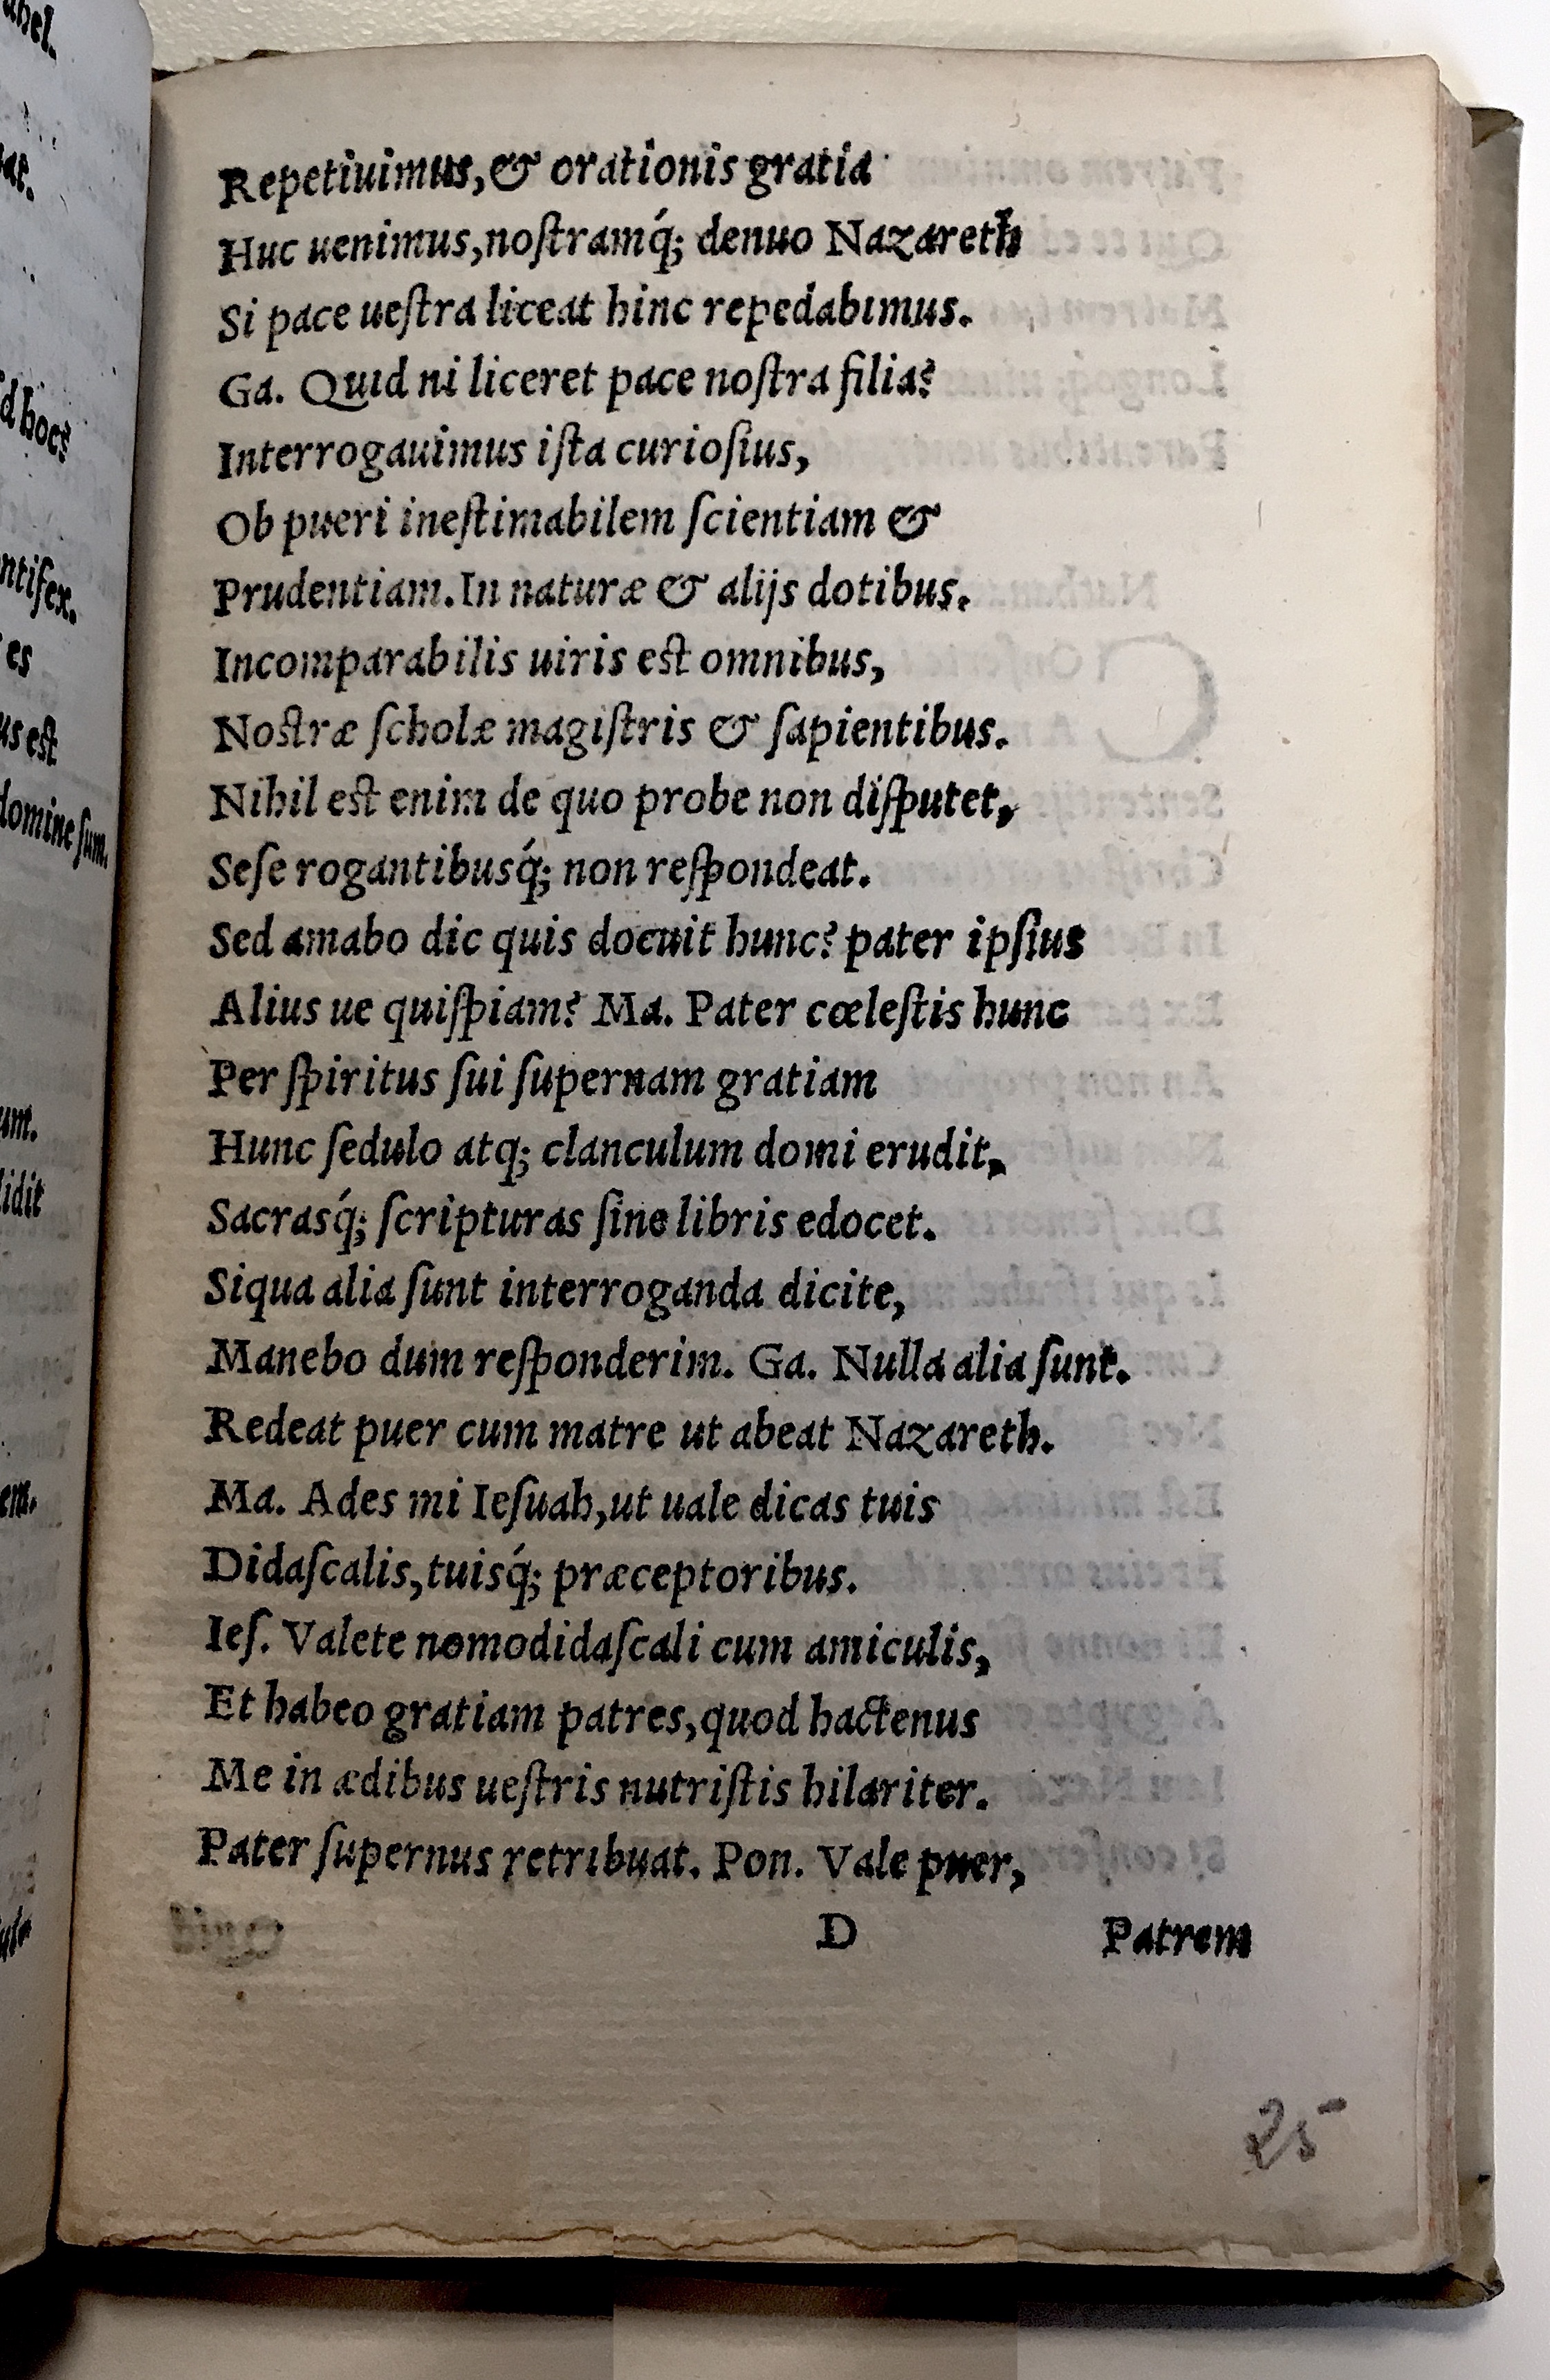 Repetiuimus, & orationis gratia
Huc uenimus, noſtramq́; denuo Nazareth
Si pace ueſtra liceat hinc repedabimus.
Ga. Quid ni liceret pace noſtra filia?
Interrogauimus iſta curioſius,
Ob pueri ineſtimabilem ſcientiam &
Prudentiam. In naturæ & alijs dotibus.
Incomparabilis uiris est omnibus,
Nostræ ſcholæ magiſtris & ſapientibus.
Nihil est enim de quo probe non diſputet,
Seſe rogantibusq́; non reſpondeat.
Sed amabo dic quis docuit hunc? pater ipſius
Alius ue quiſpiam? Ma. Pater cœleſtis hunc
Per ſpiritus ſui ſupernam gratiam
Hunc ſedulo atq; clanculum domi erudit,
Sacrasq́; ſcripturas ſine libris edocet.
Siqua alia ſunt interroganda dicite,
Manebo dum reſponderim. Ga. Nulla alia ſunt.
Redeat puer cum matre ut abeat Nazareth.
Ma. Ades mi Ieſuah, ut uale dicas tuis
Didaſcalis, tuisq́; præceptoribus.
Ieſ. Valete nomodidaſcali cum amiculis,
Et habeo gratiam patres, quod hactenus
Me in ædibus ueſtris nutriſtis hilariter.
Pater ſupernus retribuat. Pon. Vale puer,
D Patrem
25